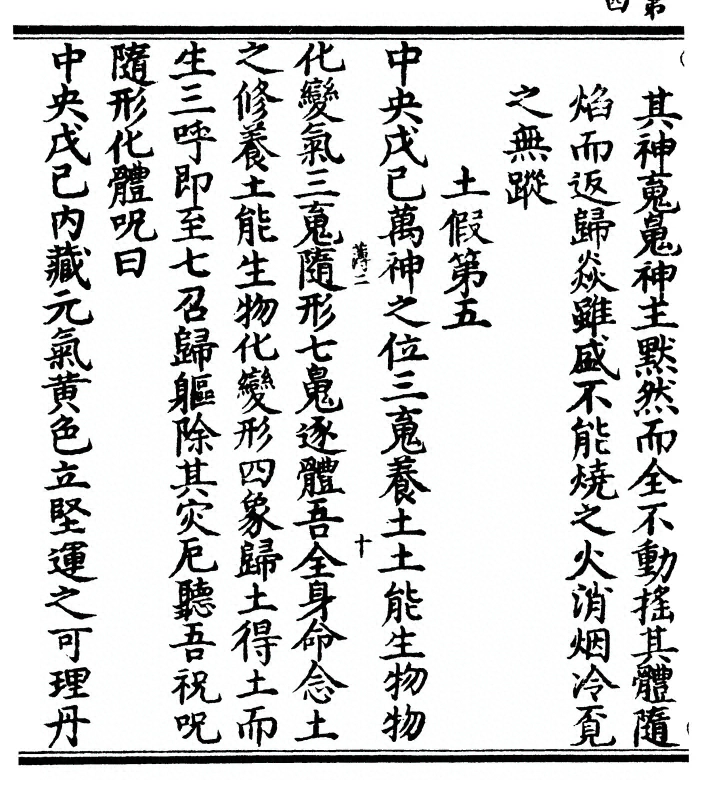 第
四
其神䰟䰠神主默然而全不動搖其體隨
焰而返歸焱雖盛不能燒之火消烟冷覔
之無蹤
土假第五
中央戊己萬神之位三䰟養土土能生物物
薄二
十
化變氣三䰟隨形七䰠逐體吾全身命念土
之修養土能生物化變形四象歸土得土而
生三呼即至七召歸軀除其灾厄聽吾祝呪
隨形化體呪曰
中央戊己內藏元氣黃色立堅運之可理丹